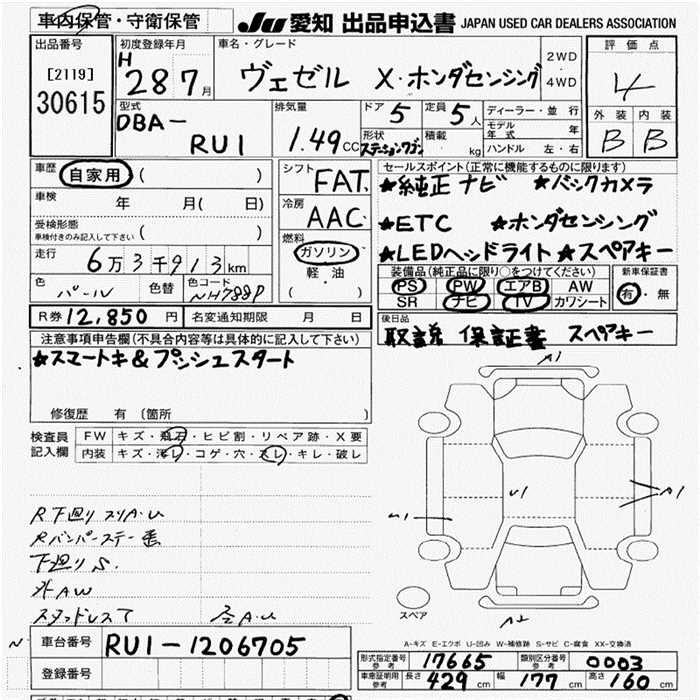 車内保管・守衛保管
JU 愛知 出品申込書 JAPAN USED CAR DEALERS ASSOCIATION
出品番号
[2119]
30615
初度登録年月
H 28 7月
車名・グレード
ヴェゼル X・ホンダセンシング
2WD
4WD
評価点
4
外装 内装
B B
型式
DBA-
RU1
排気量
1.49cc
ドア 5
定員 5人
形状 ステーションワゴン
積載 kg
ディーラー・並行
モデル年式 年
ハンドル 左・右
車歴 自家用 ( )
車検 年 月( 日)
受検形態
車検付きのみ記入して下さい ( )
走行 6万3千913km
色 パール
色替
色コード NH788P
シフト FAT
冷房 AAC
燃料
ガソリン
軽・油
( )
セールスポイント(正常に機能するものに限ります)
★純正ナビ ★バックカメラ
★ETC ★ホンダセンシング
★LEDヘッドライト ★スペアキー
装備品(純正品に限り○をつけてください)
PS PW エアB AW
SR ナビ TV カワシート
新車保証書
有・無
R券 12,850円
名変通知期限 月 日
後日品
取説 保証書 スペアキー
注意事項申告欄(不具合内容等は具体的に記入して下さい)
★スマートキ&プッシュスタート
修復歴 有 (箇所 )
検査員記入欄
FW キズ・飛石・ヒビ割・リペア跡・X要
内装 キズ・汚レ・コゲ・穴・スレ・キレ・破レ
R下廻りスリA・U
Rバンパーステー
下廻りS.
外AW
スタッドレス
A・U
A1
U1
A1
A2
スペア
A-キズ E-エクボ U-凹み W-補修跡 S-サビ C-腐食 XX-交換済
車台番号 RU1-1206705
登録番号
形式指定番号 参考 17665
類別区分番号 参考 0003
車庫証明用 参考 長さ 429cm 幅 177cm 高さ 160cm